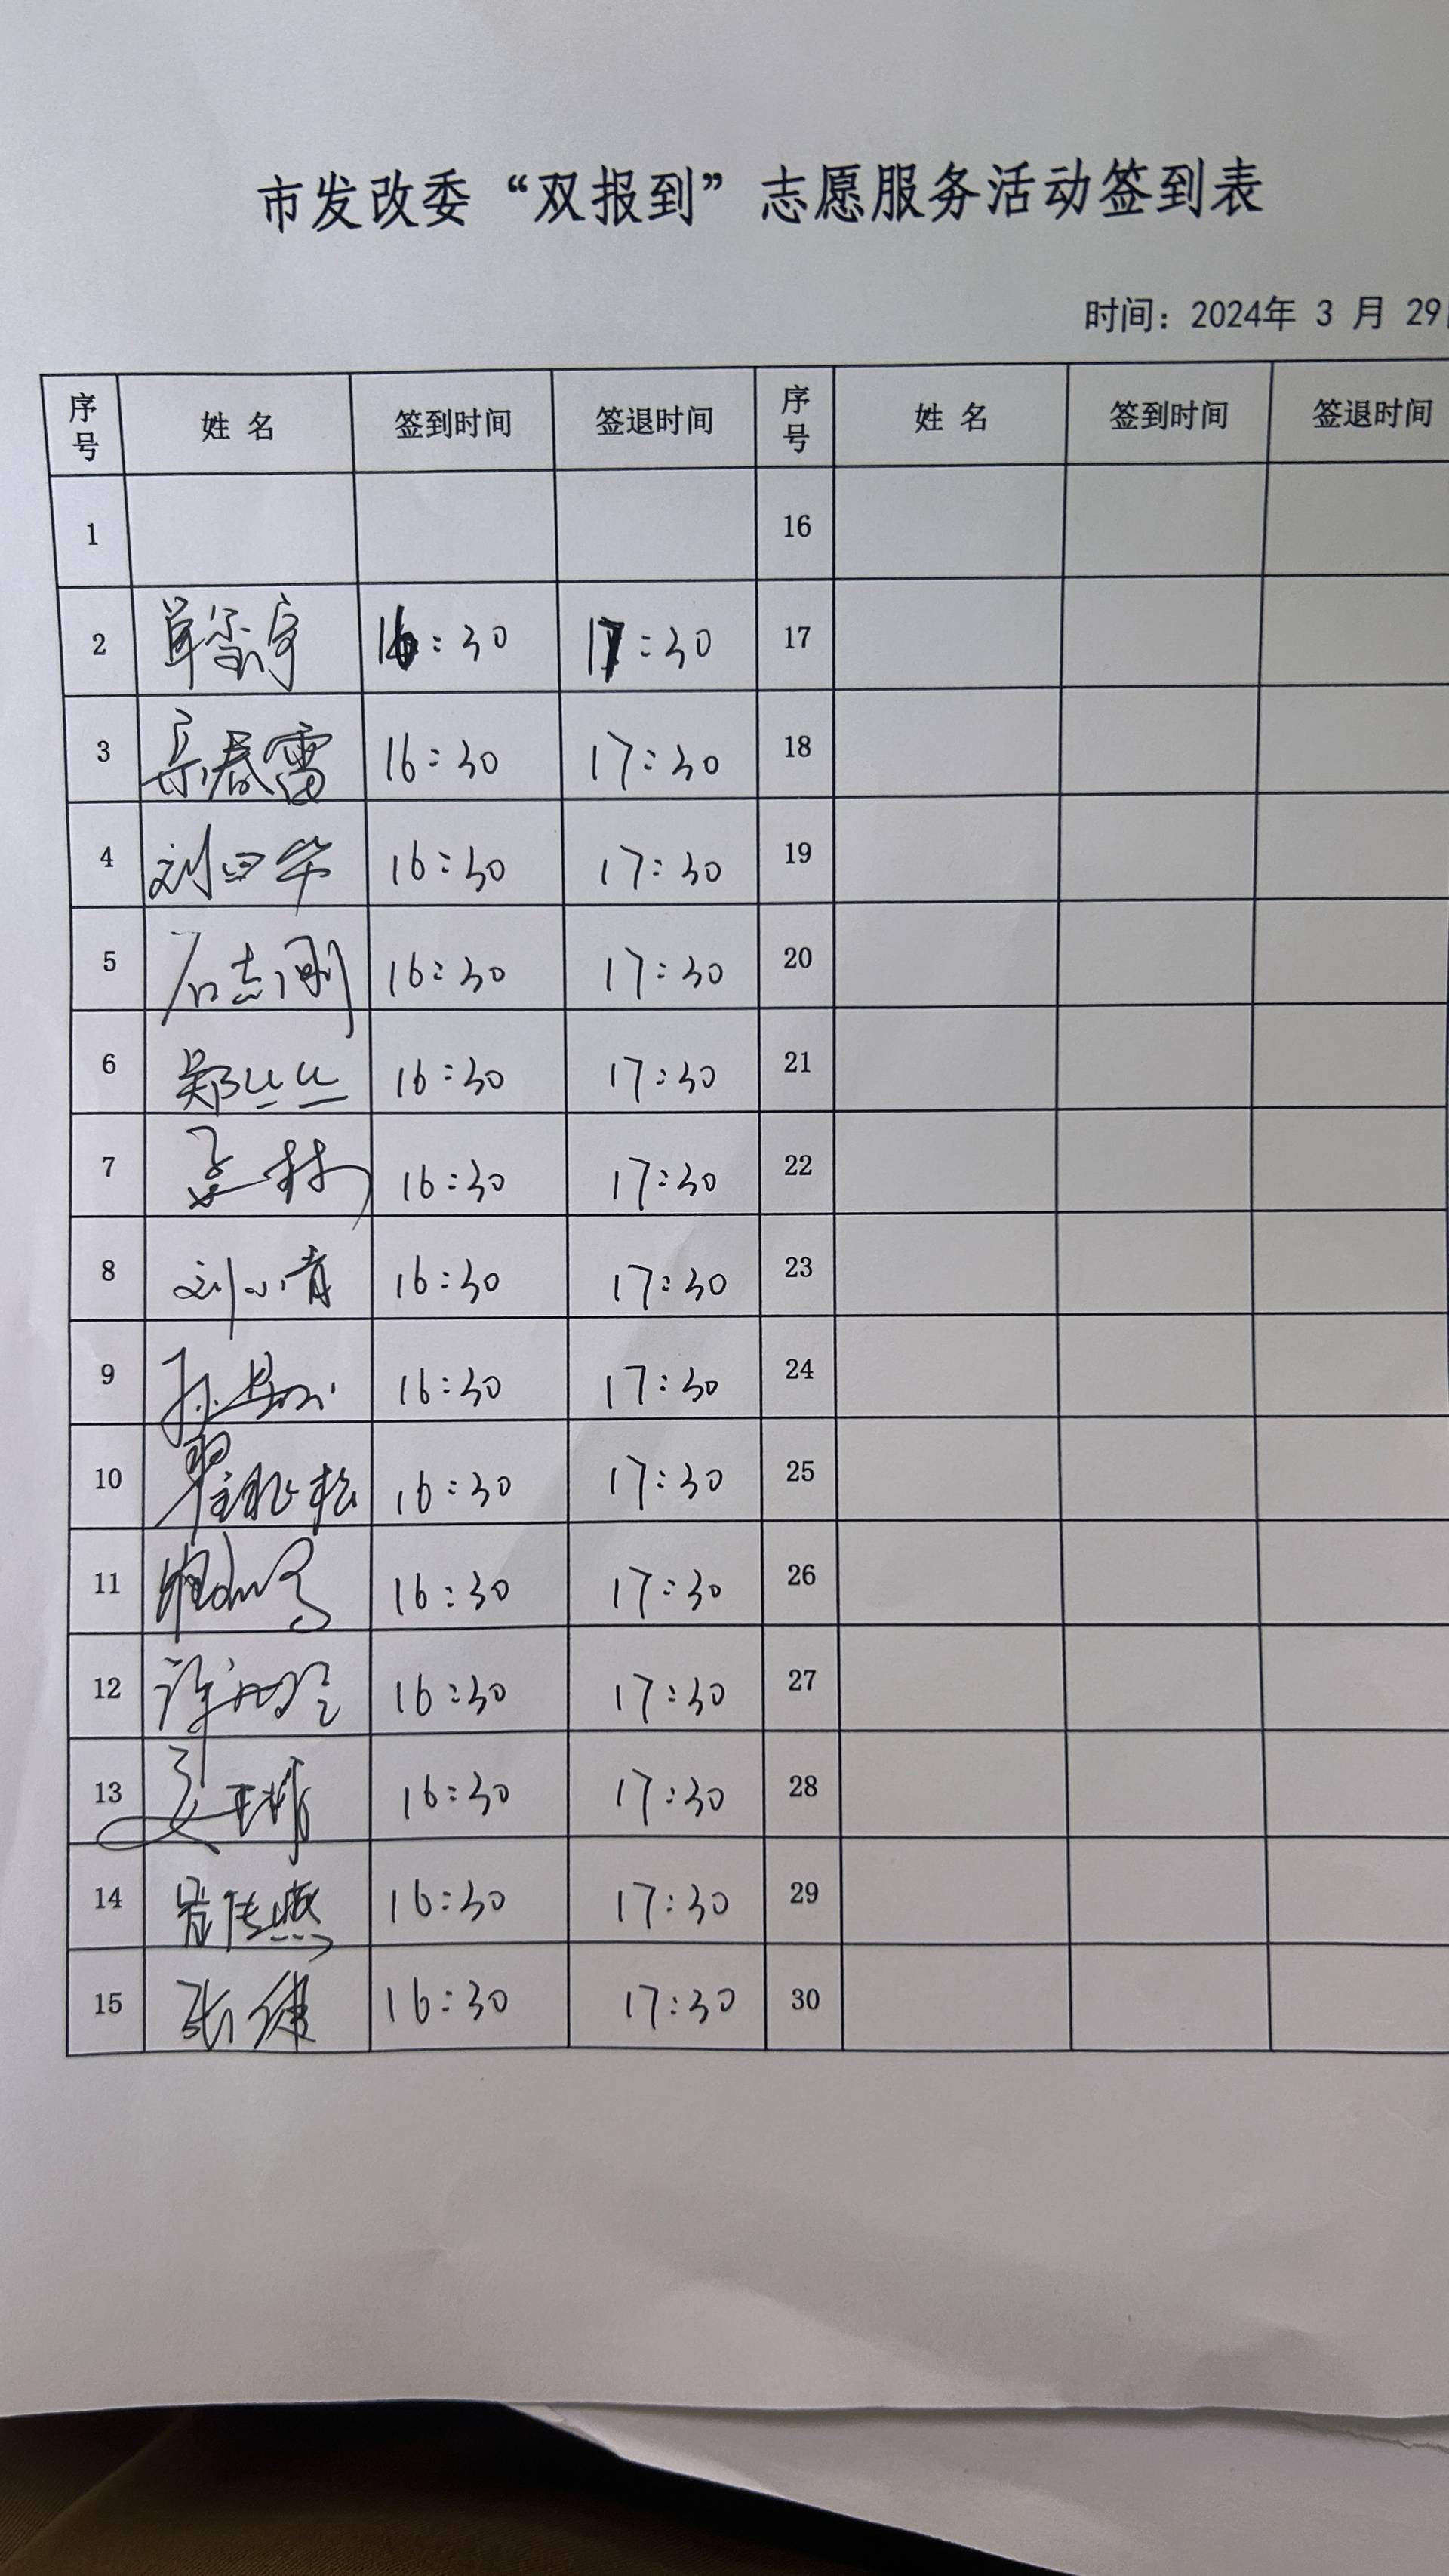 市发改委“双报到”志愿服务活动签到表
时间：2024年 3 月 29
序号 姓名 签到时间 签退时间 序号 姓名 签到时间 签退时间
1 16
2 16:30 17:30 17
3 春雷 16:30 17:30 18
4 刘 华 16:30 17:30 19
5 石志刚 16:30 17:30 20
6 郑丝丝 16:30 17:30 21
7 孟林 16:30 17:30 22
8 刘小青 16:30 17:30 23
9 孙 16:30 17:30 24
10 翟 松 16:30 17:30 25
11 16:30 17:30 26
12 许 16:30 17:30 27
13 16:30 17:30 28
14 燕 16:30 17:30 29
15 张健 16:30 17:30 30